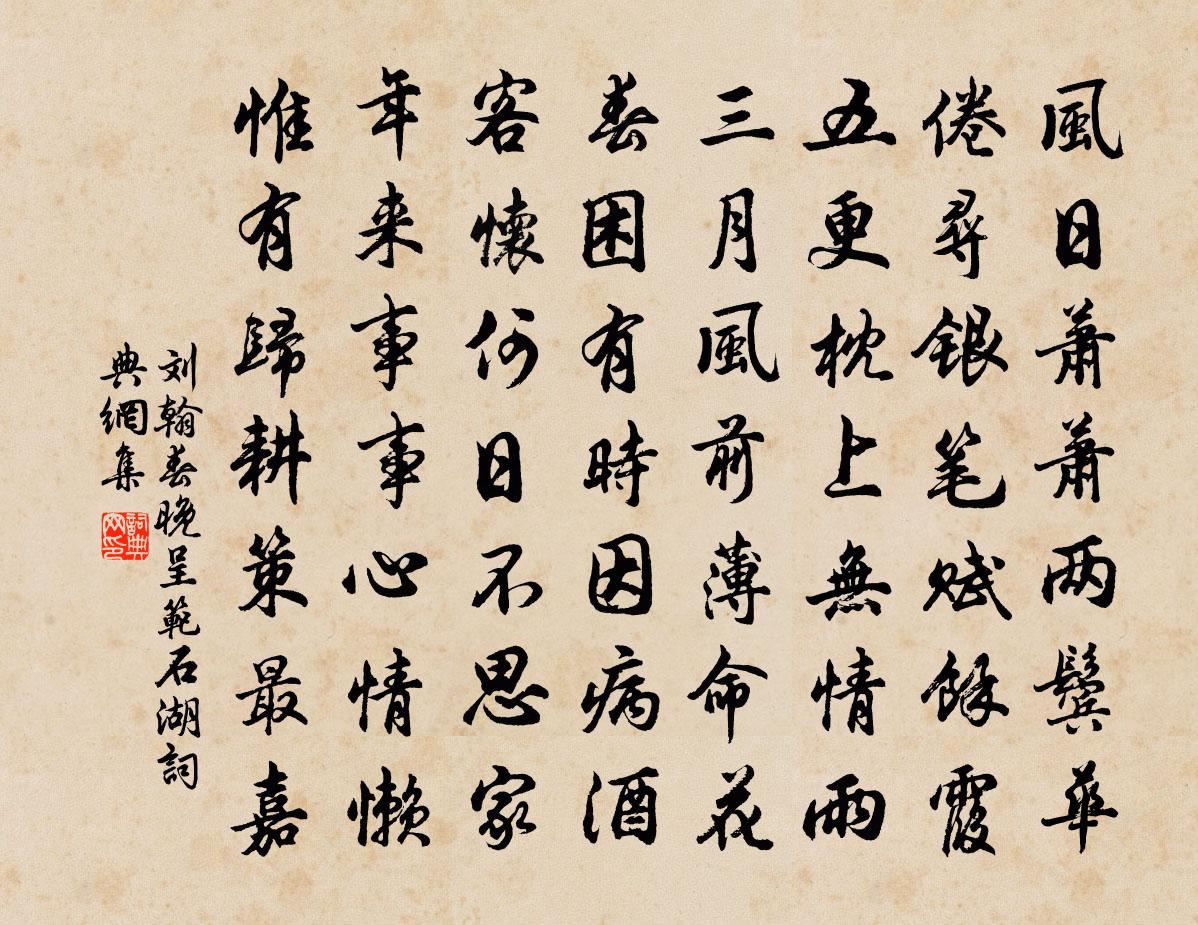 風日蕭蕭两鬓華
倦尋銀笔赋餘霞
五更枕上無情雨
三月風前薄命花
春困有時因病酒
客懷何日不思家
年来事事心情懒
惟有歸耕策最嘉
刘翰春晚呈範石湖詞
典網集
詞典
网印